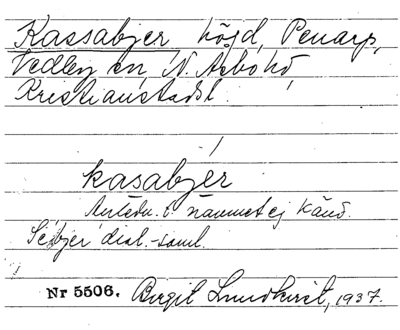 Kassabjer höjd, Penarp,
Vedby sn, N. Åsbo hd,
Kristianstadsl.
kasabjer
Anledn. t. namnet ej känd.
Se bjer dial.-saml.
Nr 5506. Birgit Lundkvist, 1937.